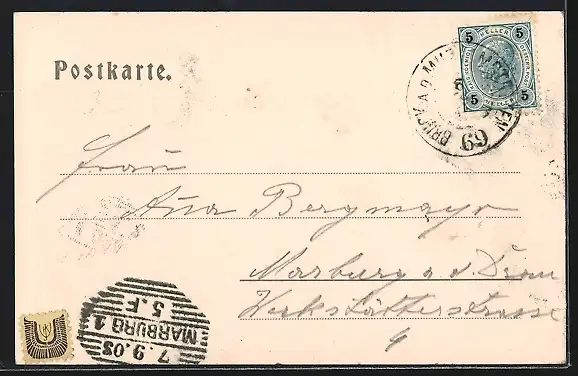 Postkarte.
5 HELLER 5
5 HELLER 5
BRUCK A.D. MUR
69
Frau
Ana Bergmayr
Marburg a. d. Drau
Werkstättenstrasse
4
MARBURG 1
7.9.05
5.F